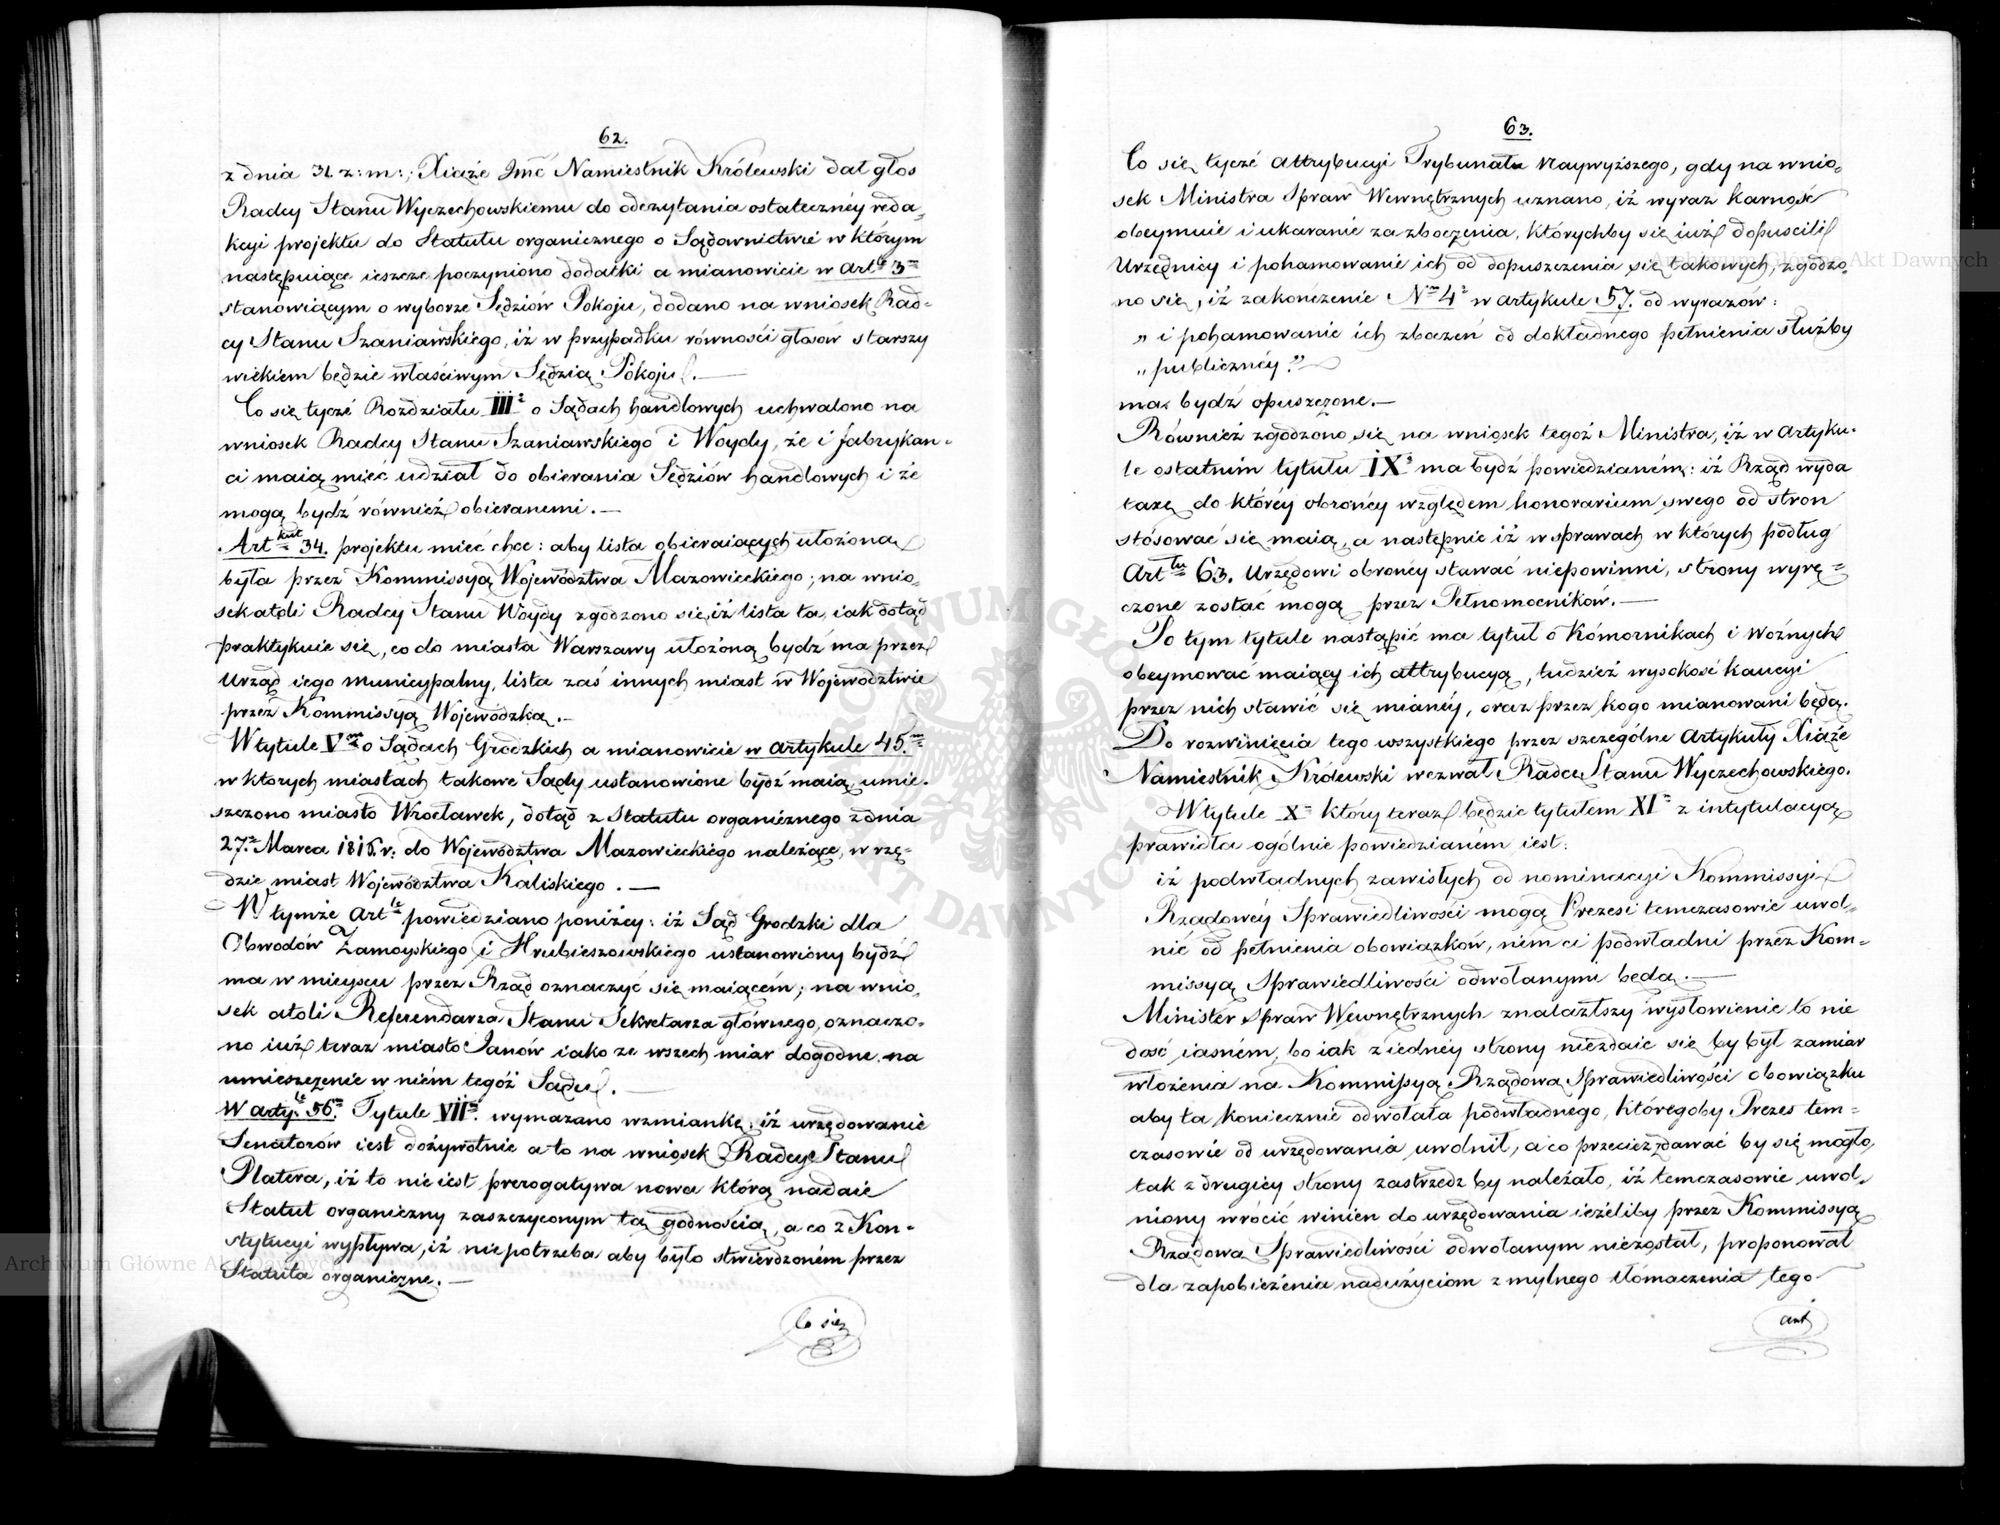 62.
z dnia 31. z: m:, Xiąże Jmć Namiestnik Królewski dał głos
Radcy Stanu Wyczechowskiemu do odczytania ostatecznéy reda-
kcyi projektu do Statutu organicznego o Sądownictwie w którym
następuiące ieszcze poczyniono dodatki a mianowicie w art.le 3m
stanowiącym o wyborze Sędziów Pokoju, dodano na wniosek Rad-
cy Stanu Szaniawskiego, iż w przypadku równości głosów starszy
wiekiem będzie właściwym Sędzią Pokoju.—
Co się tycze Rozdziału III° o Sądach handlowych uchwalono na
wniosek Radcy Stanu Szaniawskiego i Woydy, że i fabrykan-
ci maią mieć udział do obierania Sędziów handlowych i że
mogą bydź również obieranemi.—
Artkuł 34. projektu mieć chce: aby lista obieraiących ułożona
była przez Kommissyą Województwa Mazowieckiego; na wnio-
sek atoli Radcy Stanu Woydy zgodzono się iż lista ta, iak dotąd
praktykuie się, co do miasta Warszawy ułożoną bydź ma przez
Urząd iego municypalny, lista zaś innych miast w Województwie
przez Kommissyą Wojewódzką.—
W tytule Vm o Sądach Grodzkich a mianowicie w artykule 45.m
w których miastach takowe Sądy ustanowione bydź maią, umie-
szczono miasto Wrocławek, dotąd z Statutu organicznego z dnia
27. Marca 1816. r. do Województwa Mazowieckiego należące, w rzę-
dzie miast Województwa Kaliskiego.—
W tymże art.le powiedziano poniżey: iż Sąd Grodzki dla
Obwodów Zamoyskiego i Hrubieszowskiego ustanowiony bydź
ma w mieyscu przez Rząd oznaczyć się maiącém; na wnio-
sek atoli Referendarza Stanu Sekretarza głównego, oznaczo-
no iuż teraz miasto Janów iako ze wszech miar dogodne na
umieszczenie w niém tegóż Sądu.—
W arty.le 56m Tytule VIIm wymazano wzmiankę, iż urzędowanie
Senatorów iest dożywotnie a to na wniosek Radcy Stanu
Platera, iż to nie iest prerogatywa nowa którą nadaie
Statut organiczny zaszczyconym tą godnością, a co z Kon-
stytucyi wypływa, iż nie potrzeba aby było stwierdzoném przez
Statuta organiczne.—
Co się
63.
Co się tycze attrybucyi Trybunału naywyższego, gdy na wnio-
sek Ministra Spraw Wewnętrznych uznano, iż wyraz karność
obeymuie i ukaranie za zboczenia, którychby się iuż dopuścili
Urzędnicy i pohamowanie ich od dopuszczenia się takowych, zgodzo-
no się, iż zakończenie N° 4° w artykule 57. od wyrazów:
„ i pohamowanie ich zboczeń od dokładnego pełnienia służby
„ publicznéy."
ma bydź opuszczone.—
Również zgodzono się na wniosek tegoż Ministra, iż w artyku-
le ostatnim tytułu IX° ma bydź powiedzianém: iż Rząd wyda
taxę do któréy obrońcy względem honorarium swego od stron
stósować się maią, a następnie iż w sprawach w których podług
Art.łu 63. Urzędowi obrońcy stawać niepowinni, strony wyrę-
czone zostać mogą przez Pełnomocników.—
Po tym tytule nastąpić ma tytuł o Komornikach i Woźnych
obeymować maiący ich attrybucyą, tudzież wysokość kaucyi
przez nich stawić się mianéy, oraz przez kogo mianowani będą.
Do rozwinięcia tego wszystkiego przez szczególne artykuły Xiąże
Namiestnik Królewski wezwał Radcę Stanu Wyczechowskiego.
W tytule Xm który teraz będzie tytułem XIm z intytulacyą
prawidła ogólnie powiedzianém iest:
iż podwładnych zawisłych od nominacyi Kommissyi
Rządowéy Sprawiedliwości mogą Prezesi temczasowie uwol-
nić od pełnienia obowiązków, nim ci podwładni przez Kom-
missyą Sprawiedliwości odwołanymi będą.—
Minister Spraw Wewnętrznych znalazłszy wysłowienie to nie
dość iasném, bo iak z iednéy strony niezdaie się by był zamiar
włożenia na Kommissyą Rządową Sprawiedliwości obowiązku
aby ta koniecznie odwołała podwładnego, któregoby Prezes tem-
czasowie od urzędowania uwolnił, a co przecież zdawać by się mogło,
tak z drugiey strony zastrzedz by należało, iż temczasowie uwol-
niony wrócić winien do urzędowania ieżeliby przez Kommissyą
Rządową Sprawiedliwości odwołanym niezostał, proponował
dla zapobieżenia nadużyciom z mylnego tłómaczenia tego
art
Archiwum Główne Akt Dawnych
Archiwum Główne Akt Dawnych
ARCHIWUM GŁÓWNE AKT DAWNYCH